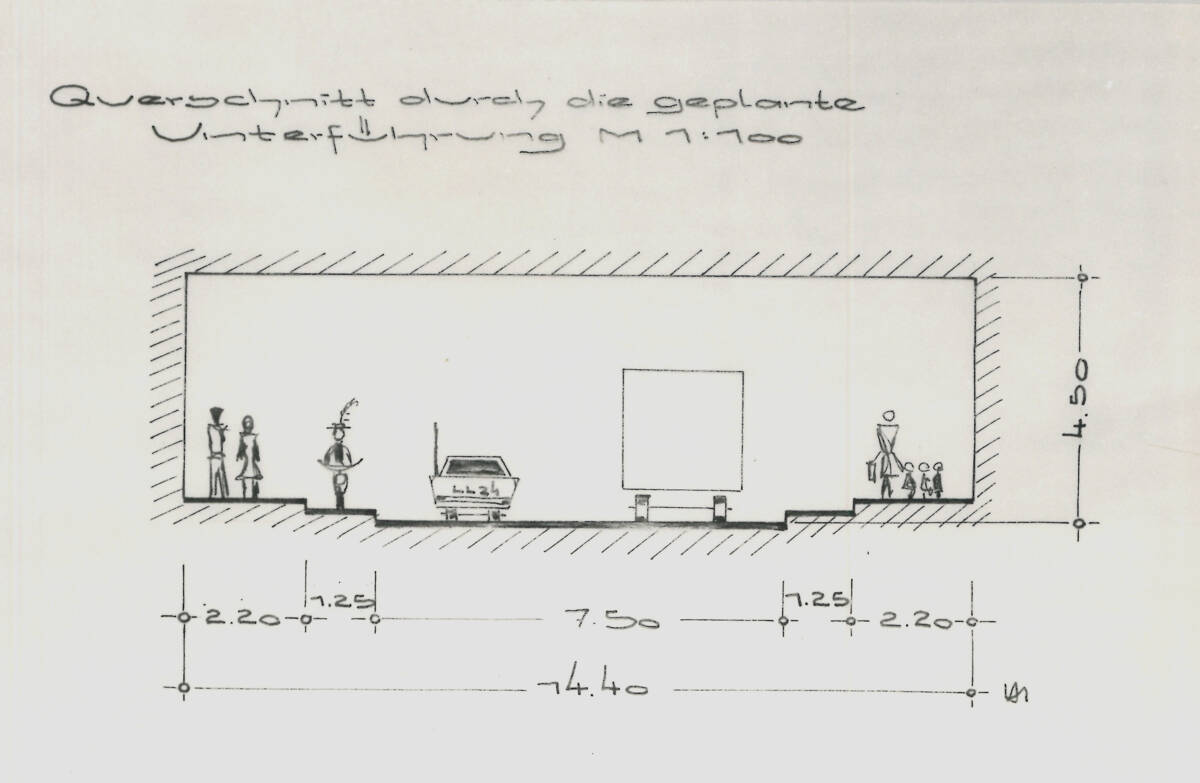 Querschnitt durch die geplante
Unterführung M 1:100
4.50
2.20 1.25 7.50 1.25 2.20
14.40